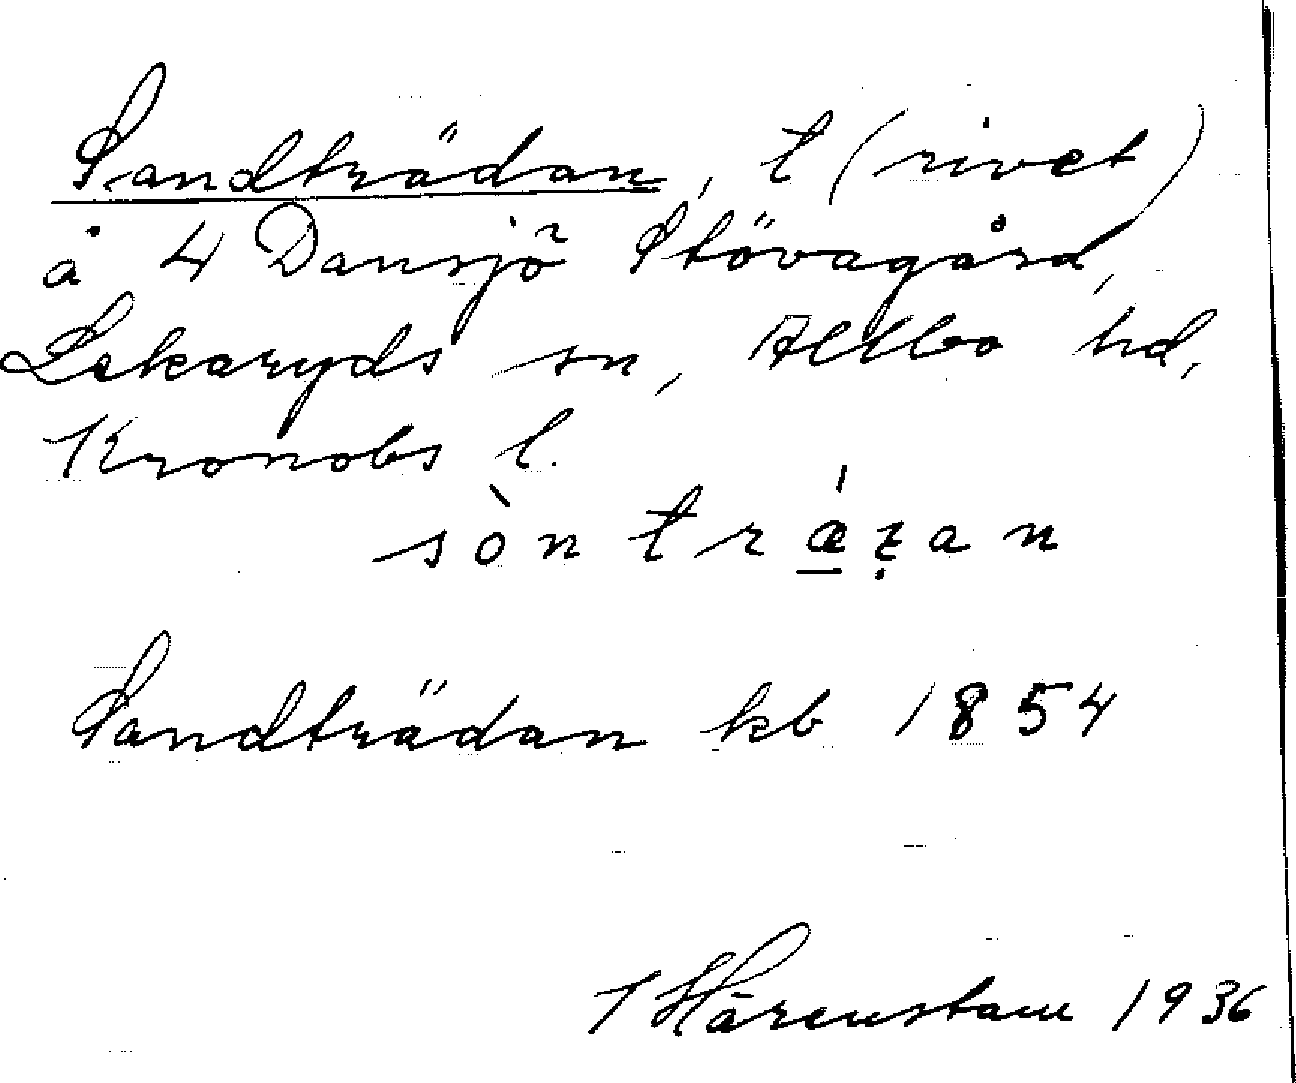 Sandträdan, t (rivet)
å 4 Dansjö Stövagård,
Lekaryds sn, Allbo hd,
Kronobs l.
sòn trǽẓan
Sandträdan kb 1854
I Härenstam 1936